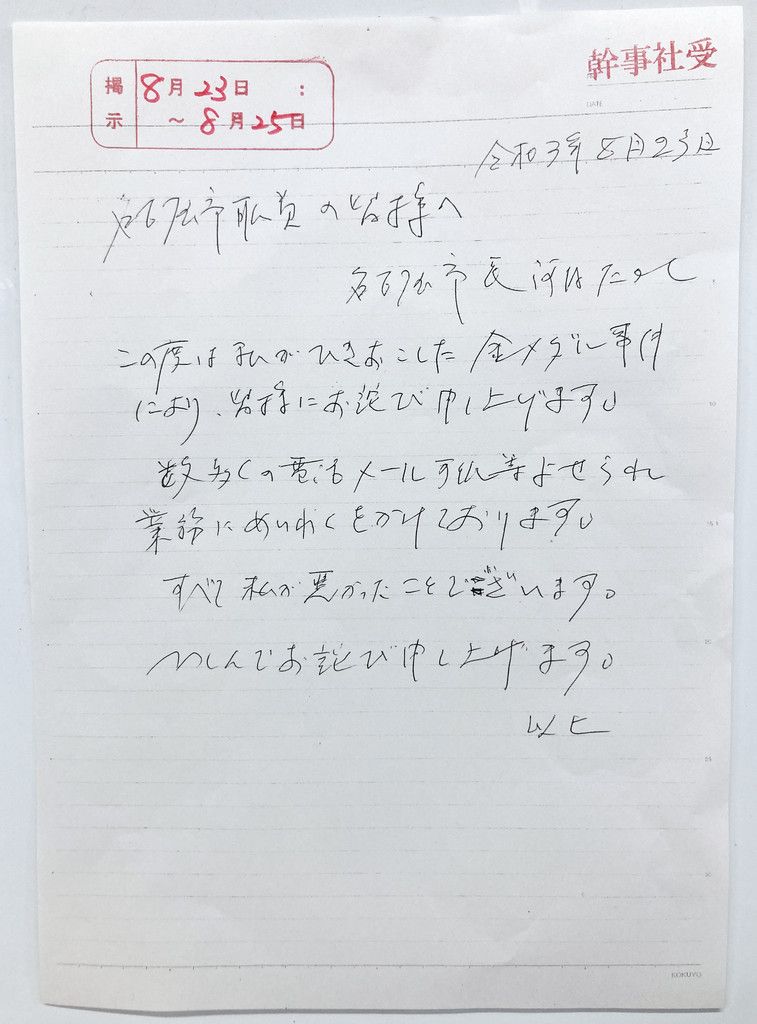 幹事社受
掲示 8月23日 :
～8月25日
DATE
令和3年8月23日
名古屋市職員の皆様へ
名古屋市長 河村たかし
この度は私がひきおこした金メダル事件
により、皆様にお詫び申し上げます。
数多くの電話メール手紙等よせられ
業務にめいわくをかけております。
すべて私が悪かったことでございます。
つつしんでお詫び申し上げます。
以上
KOKUYO